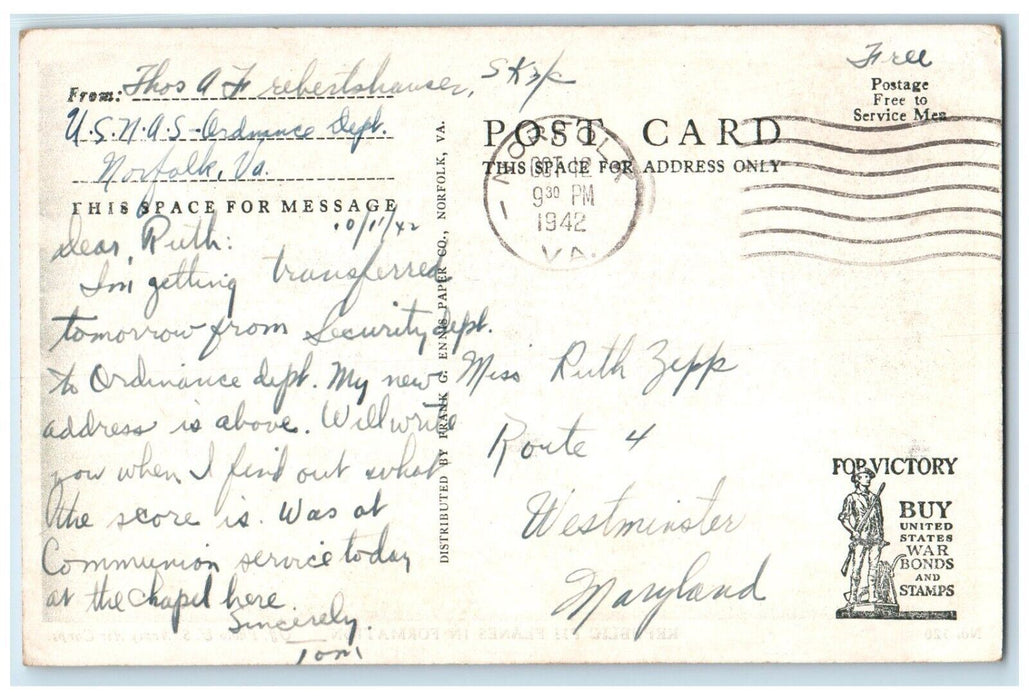 From: Thos A F rebertshauser, SK3/c
U.S.N.A.S-Ordnance Dept.
Norfolk, Va.
THIS SPACE FOR MESSAGE
10/11/42
Dear Ruth:
I'm getting transferred
tomorrow from Security dept.
to Ordinance dept. My new
address is above. Will write
you when I find out what
the score is. Was at
Communion service today
at the chapel here.
Sincerely
Tom
DISTRIBUTED BY FRANK G. ENNIS PAPER CO., NORFOLK, VA.
Free
Postage
Free to
Service Men
POST CARD
THIS SPACE FOR ADDRESS ONLY
NORFOLK
OCT 12
9 30 PM
1942
VA.
Miss Ruth Zepp
Route 4
Westminster
Maryland
FOR VICTORY
BUY
UNITED
STATES
WAR
BONDS
AND
STAMPS